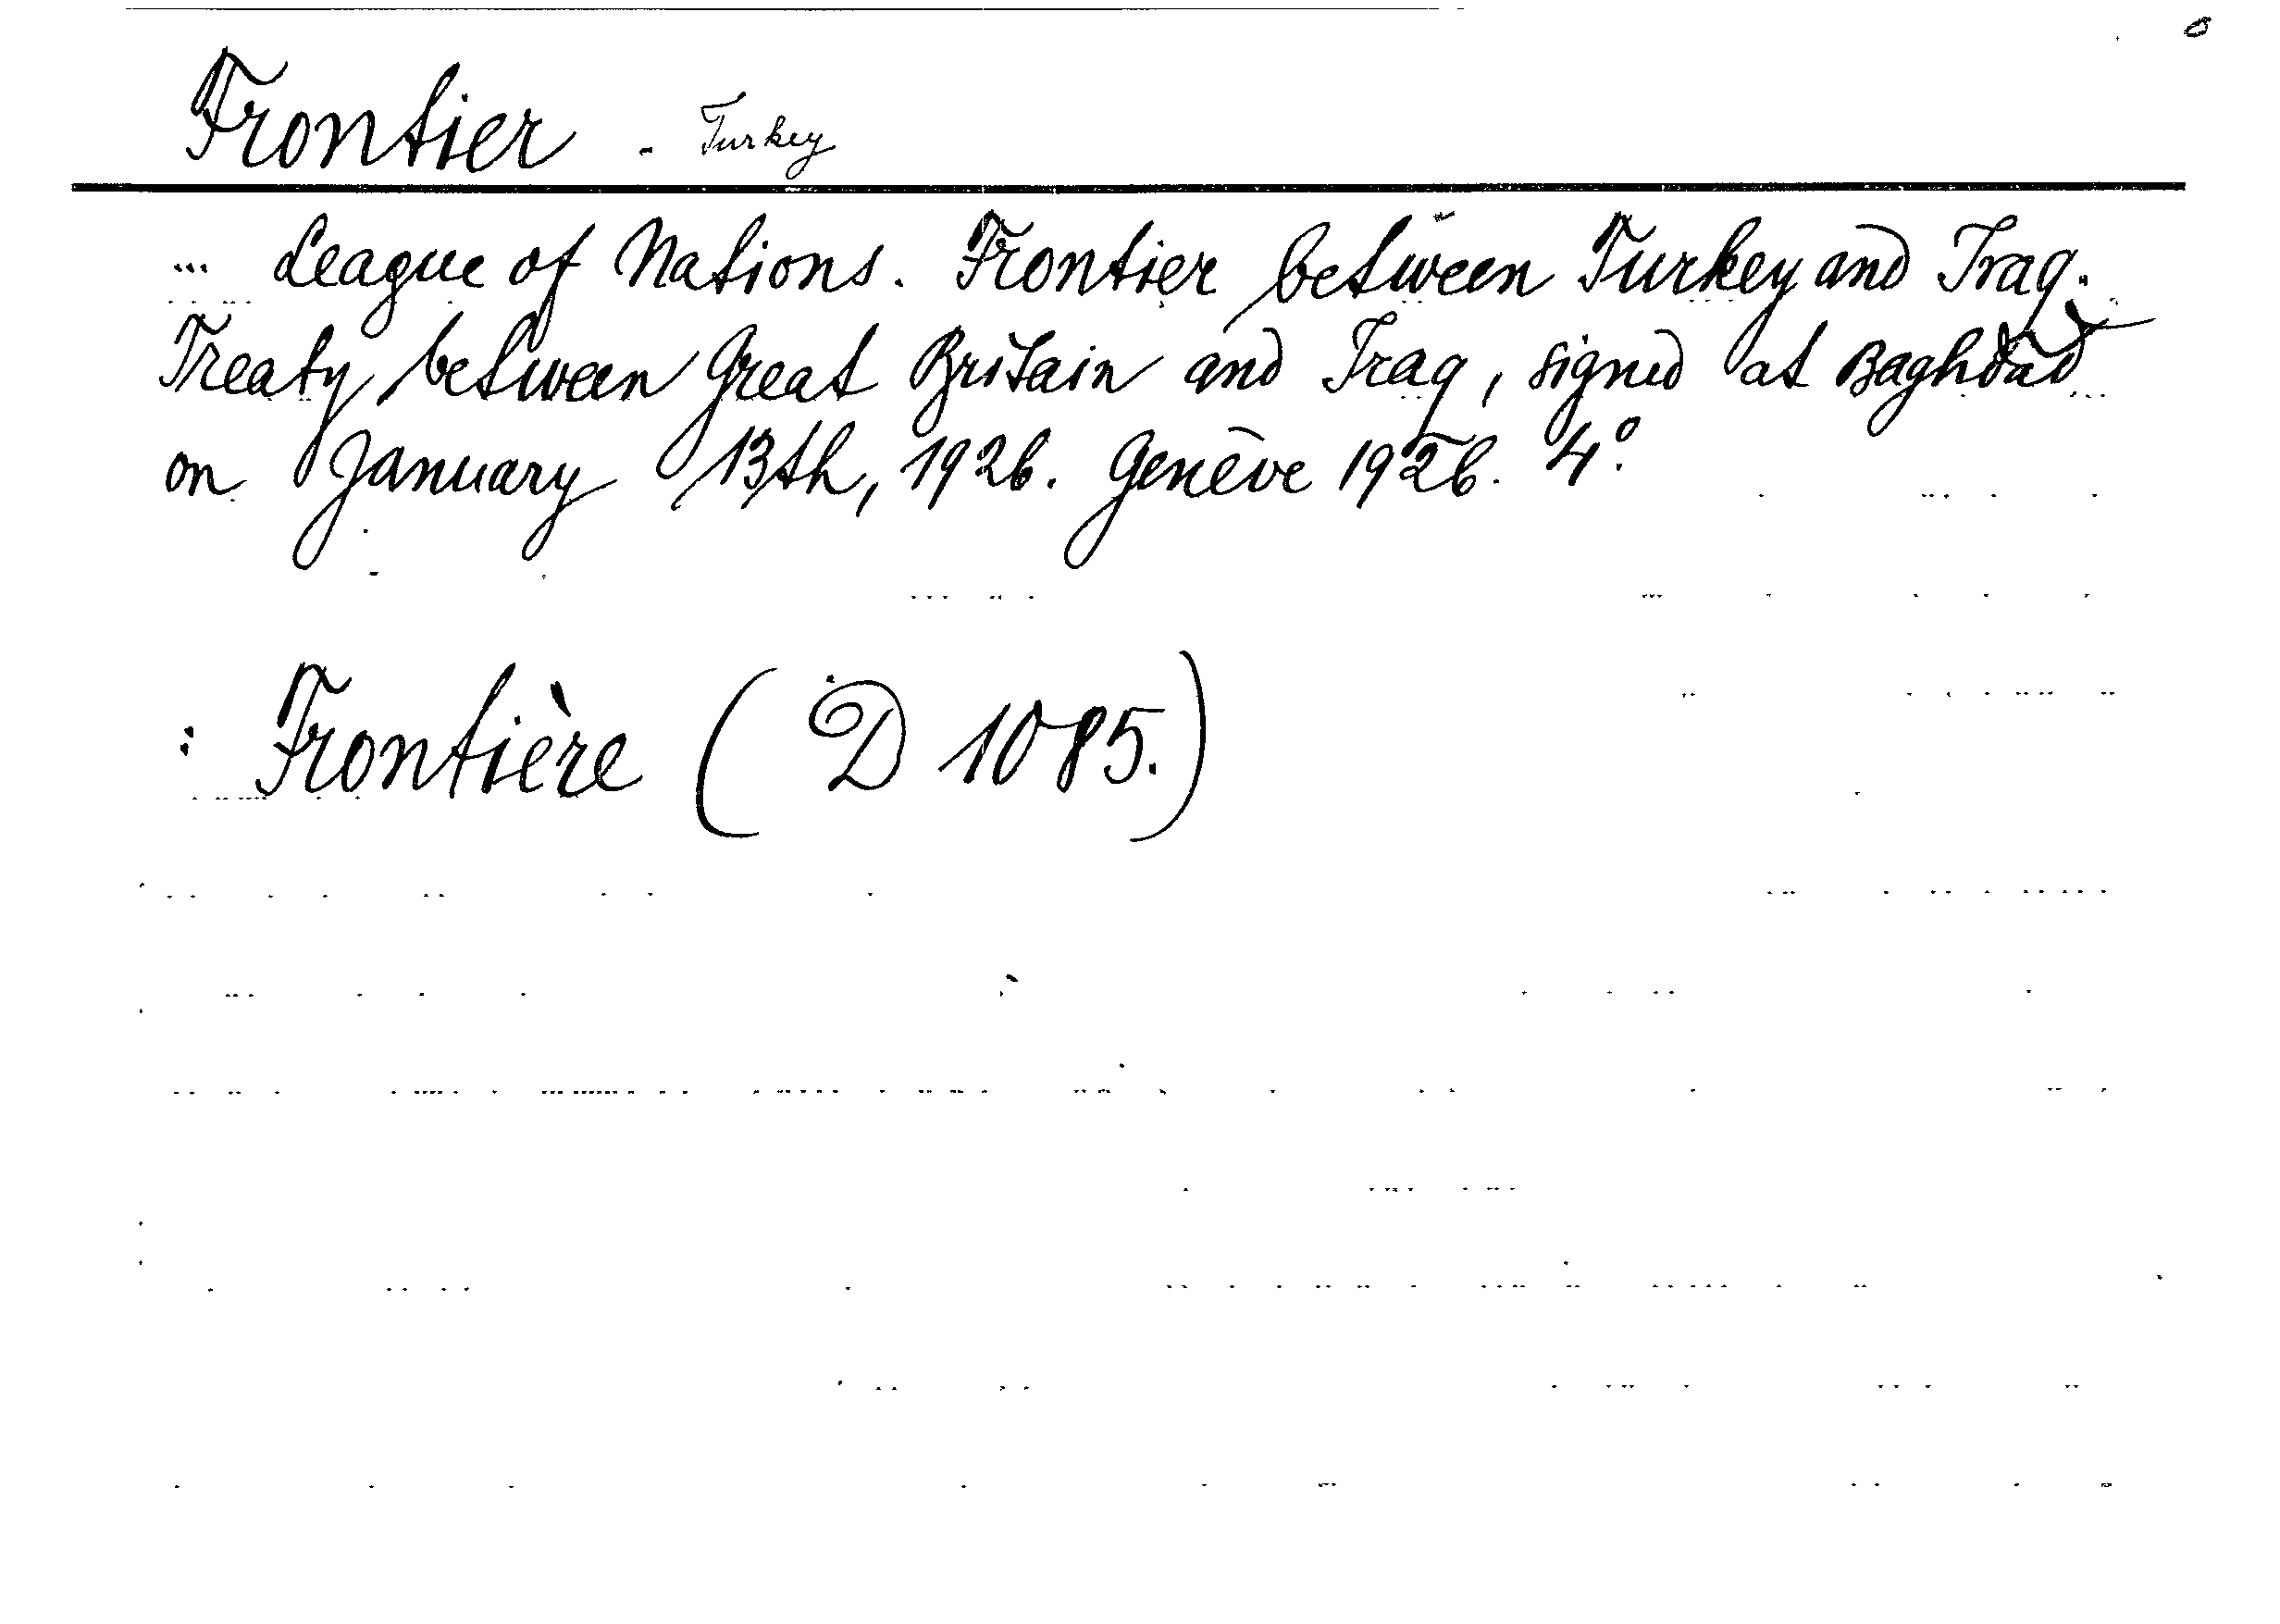 Frontier - Turkey
... League of Nations. Frontier between Turkey and Iraq.
Treaty between Great Britain and Iraq, signed at Baghdad
on January 13th, 1926. Genève 1926. 4°.
: Frontière (D 1085.)